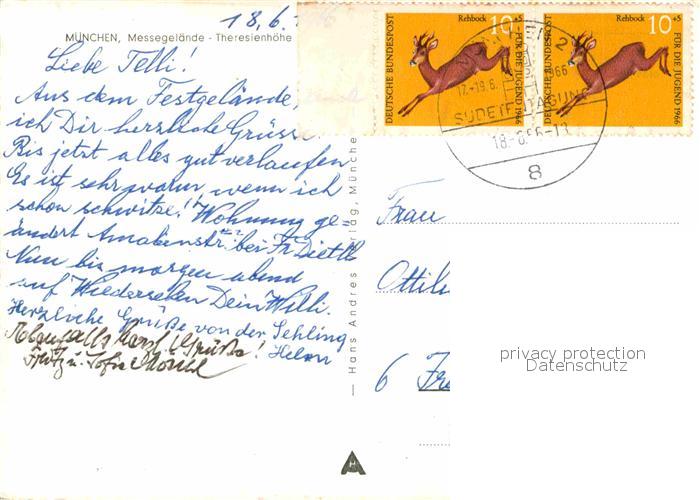 18.6.
MÜNCHEN, Messegelände - Theresienhöhe
Liebe Telli!
Aus dem Festgelände,
ich Dir herzliche Grüsse.
Bis jetzt alles gut verlaufen
Es ist sehr warm, wenn ich
schon schwitze! Wohnung ge=
ändert Amalienstr. bei Fr. Dietl
Nun bis morgen abend
auf Wiedersehen Dein Willi.
Herzliche Grüße von der Sehling
Helen
Ebenfalls herzl. Grüße!
Fritz u. Sofie
Hans Andres lag, Münche
DEUTSCHE BUNDESPOST
Rehbock 10+5
FÜR DIE JUGEND 1966
DEUTSCHE BUNDESPOST
Rehbock 10+5
FÜR DIE JUGEND 1966
EN 2
17.-19.6. 1966
SUDET TAGUNG
18.-6.66-13
8
Frau
Ottil
6 Fr
privacy protection
Datenschutz